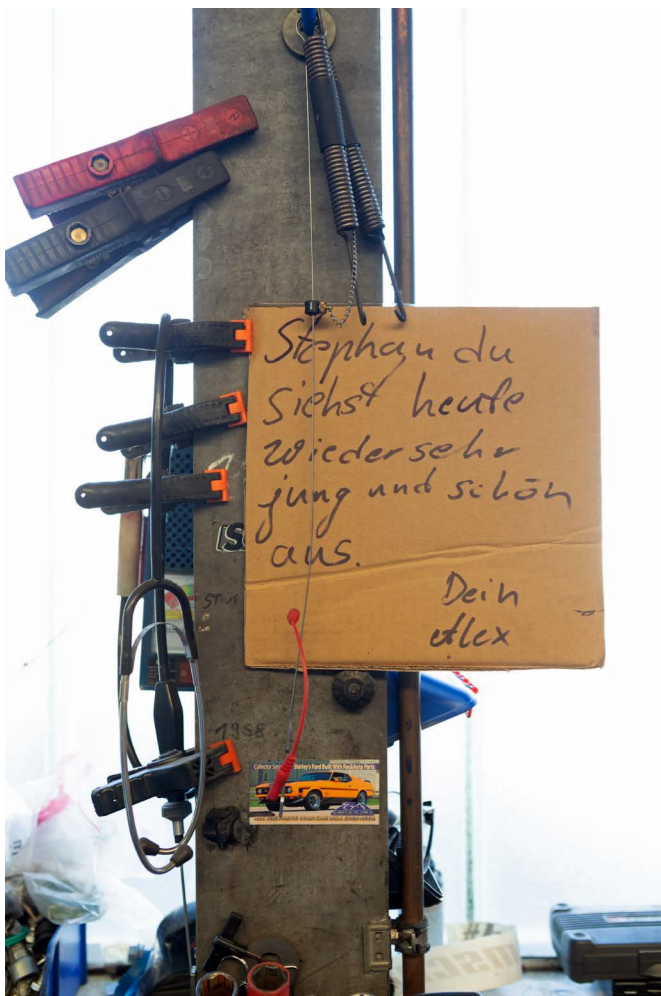 Stephan du
siehst heute
wieder sehr
jung und schön
aus.
Dein
Alex
1968
Shirley's Ford Built With RockAuto Parts